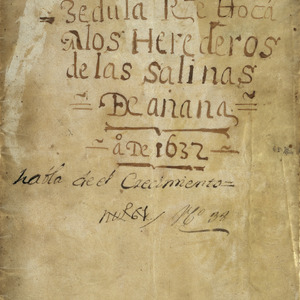 Zedula Rl q toca
A los Herederos
de las Salinas
De añana
año De 1632
habla de el Crecimiento=
Nº 34